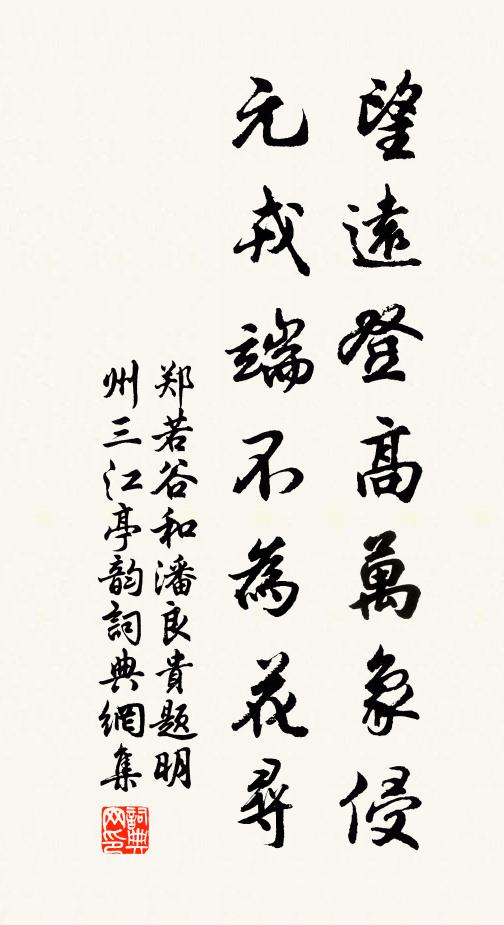 望遠登高萬象侵
元戎端不為花尋
郑若谷和潘良貴题明
州三江亭韵詞典網集
詞典网印